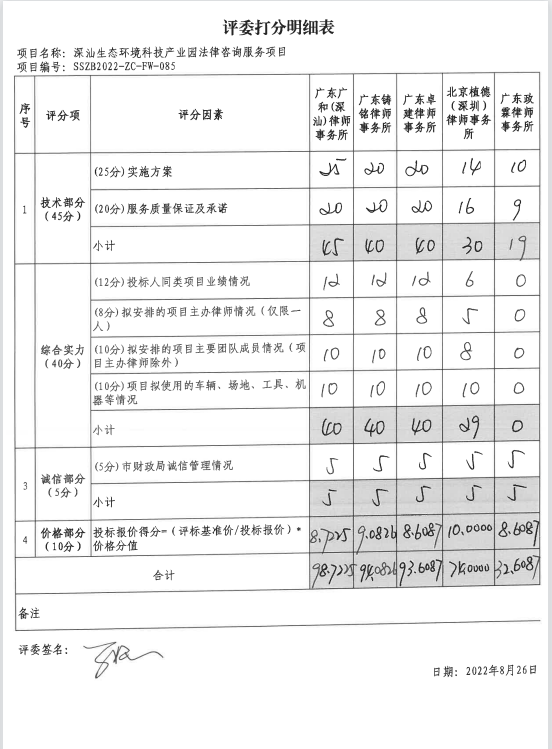 评委打分明细表
项目名称：深汕生态环境科技产业园法律咨询服务项目
项目编号：SSZB2022-ZC-FW-085
序号 评分项 评分因素 广东广和(深汕)律师事务所 广东铸铭律师事务所 广东卓建律师事务所 北京植德（深圳）律师事务所 广东政霖律师事务所
1 技术部分（45分） (25分)实施方案 25 20 20 14 10
(20分)服务质量保证及承诺 20 20 20 16 9
小计 45 40 40 30 19
综合实力（40分） (12分)投标人同类项目业绩情况 12 12 12 6 0
(8分)拟安排的项目主办律师情况（仅限一人） 8 8 8 5 0
(10分)拟安排的项目主要团队成员情况（项目主办律师除外） 10 10 10 8 0
(10分)项目拟使用的车辆、场地、工具、机器等情况 10 10 10 10 0
小计 40 40 40 29 0
3 诚信部分（5分） (5分)市财政局诚信管理情况 5 5 5 5 5
小计 5 5 5 5 5
4 价格部分（10分） 投标报价得分=（评标基准价/投标报价）*价格分值 8.7225 9.0826 8.6087 10.0000 8.6087
合计 98.7225 94.0826 93.6087 74.0000 32.6087
备注
评委签名：
日期：2022年8月26日